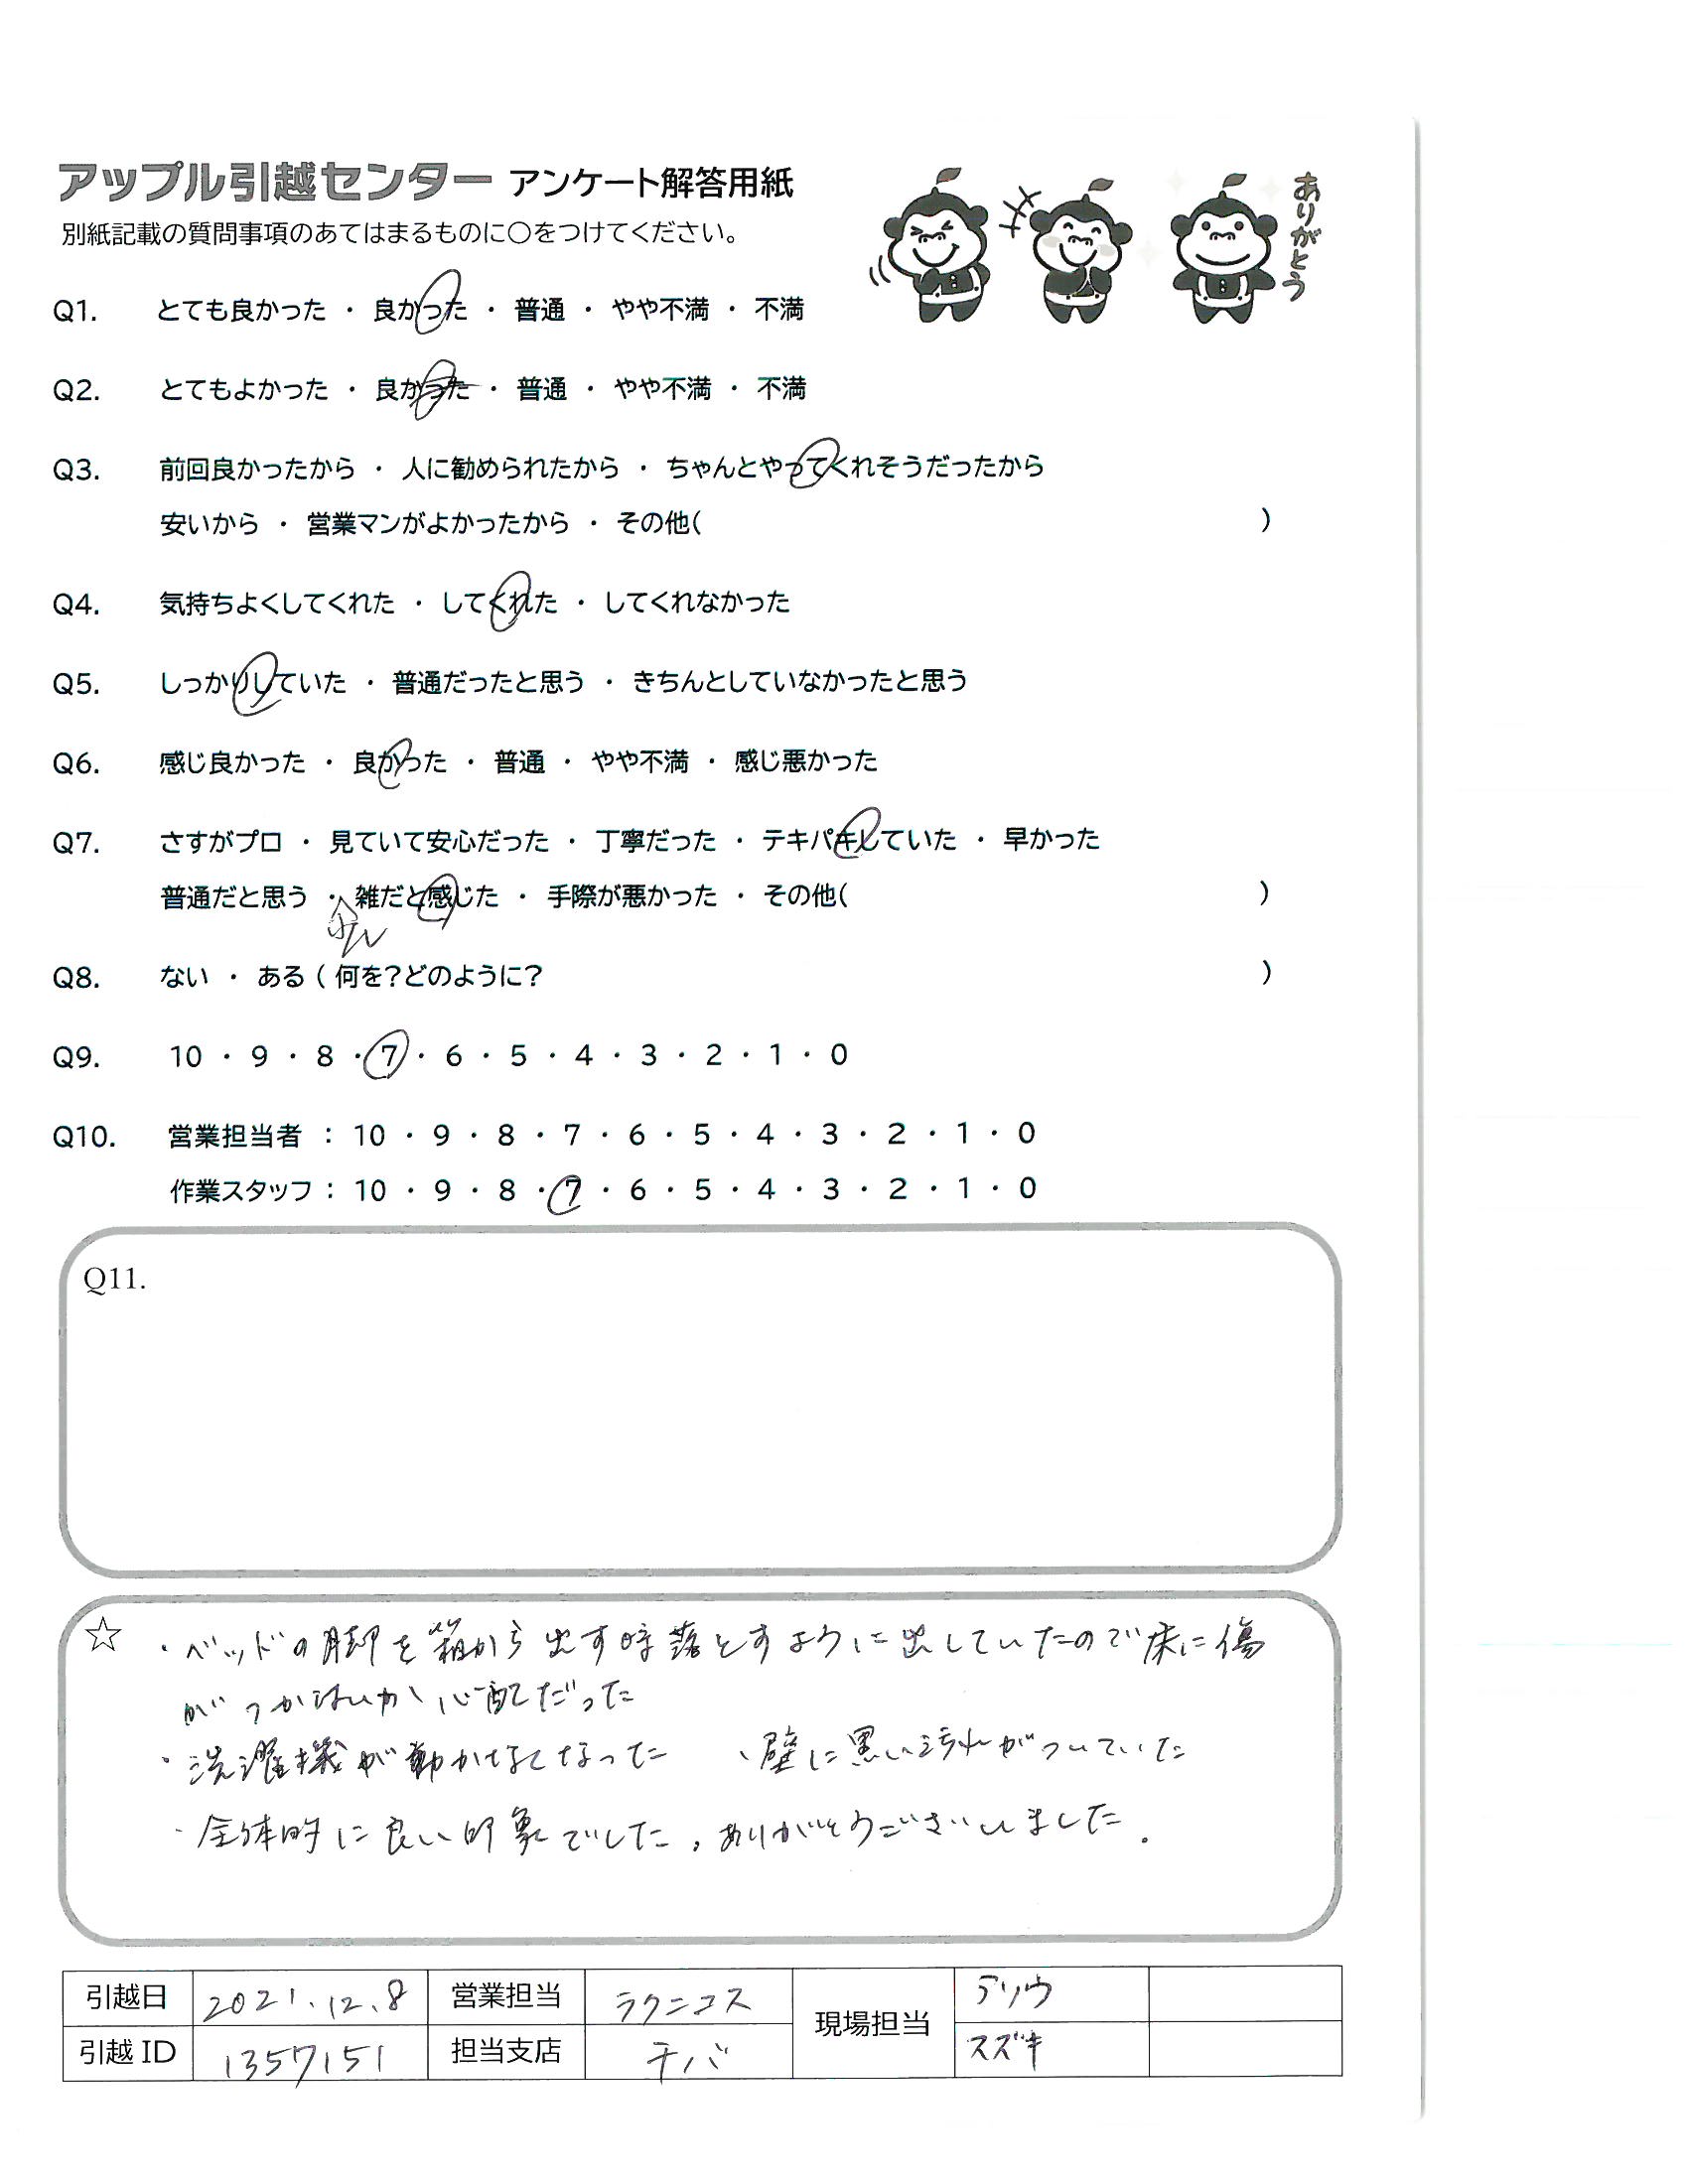 アップル引越センター アンケート解答用紙
ありがとう
別紙記載の質問事項のあてはまるものに○をつけてください。
Q1. とても良かった ・ 良かった ・ 普通 ・ やや不満 ・ 不満
Q2. とてもよかった ・ 良かった ・ 普通 ・ やや不満 ・ 不満
Q3. 前回良かったから ・ 人に勧められたから ・ ちゃんとやってくれそうだったから
安いから ・ 営業マンがよかったから ・ その他( )
Q4. 気持ちよくしてくれた ・ してくれた ・ してくれなかった
Q5. しっかりしていた ・ 普通だったと思う ・ きちんとしていなかったと思う
Q6. 感じ良かった ・ 良かった ・ 普通 ・ やや不満 ・ 感じ悪かった
Q7. さすがプロ ・ 見ていて安心だった ・ 丁寧だった ・ テキパキしていた ・ 早かった
普通だと思う ・ 雑だと感じた ・ 手際が悪かった ・ その他( )
Q8. ない ・ ある ( 何を?どのように? )
Q9. 10 ・ 9 ・ 8 ・ 7 ・ 6 ・ 5 ・ 4 ・ 3 ・ 2 ・ 1 ・ 0
Q10. 営業担当者 : 10 ・ 9 ・ 8 ・ 7 ・ 6 ・ 5 ・ 4 ・ 3 ・ 2 ・ 1 ・ 0
作業スタッフ : 10 ・ 9 ・ 8 ・ 7 ・ 6 ・ 5 ・ 4 ・ 3 ・ 2 ・ 1 ・ 0
Q11.
☆ ・ベッドの脚を箱から出す時落とすように出していたので床に傷
がつかないか心配だった
・洗濯機が動かなくなった ・壁に黒い汚れがついていた
・全体的に良い印象でした。ありがとうございました。
引越日 2021.12.8 営業担当 ラクニコス 現場担当 アソウ
引越 ID 1357151 担当支店 チバ スズキ